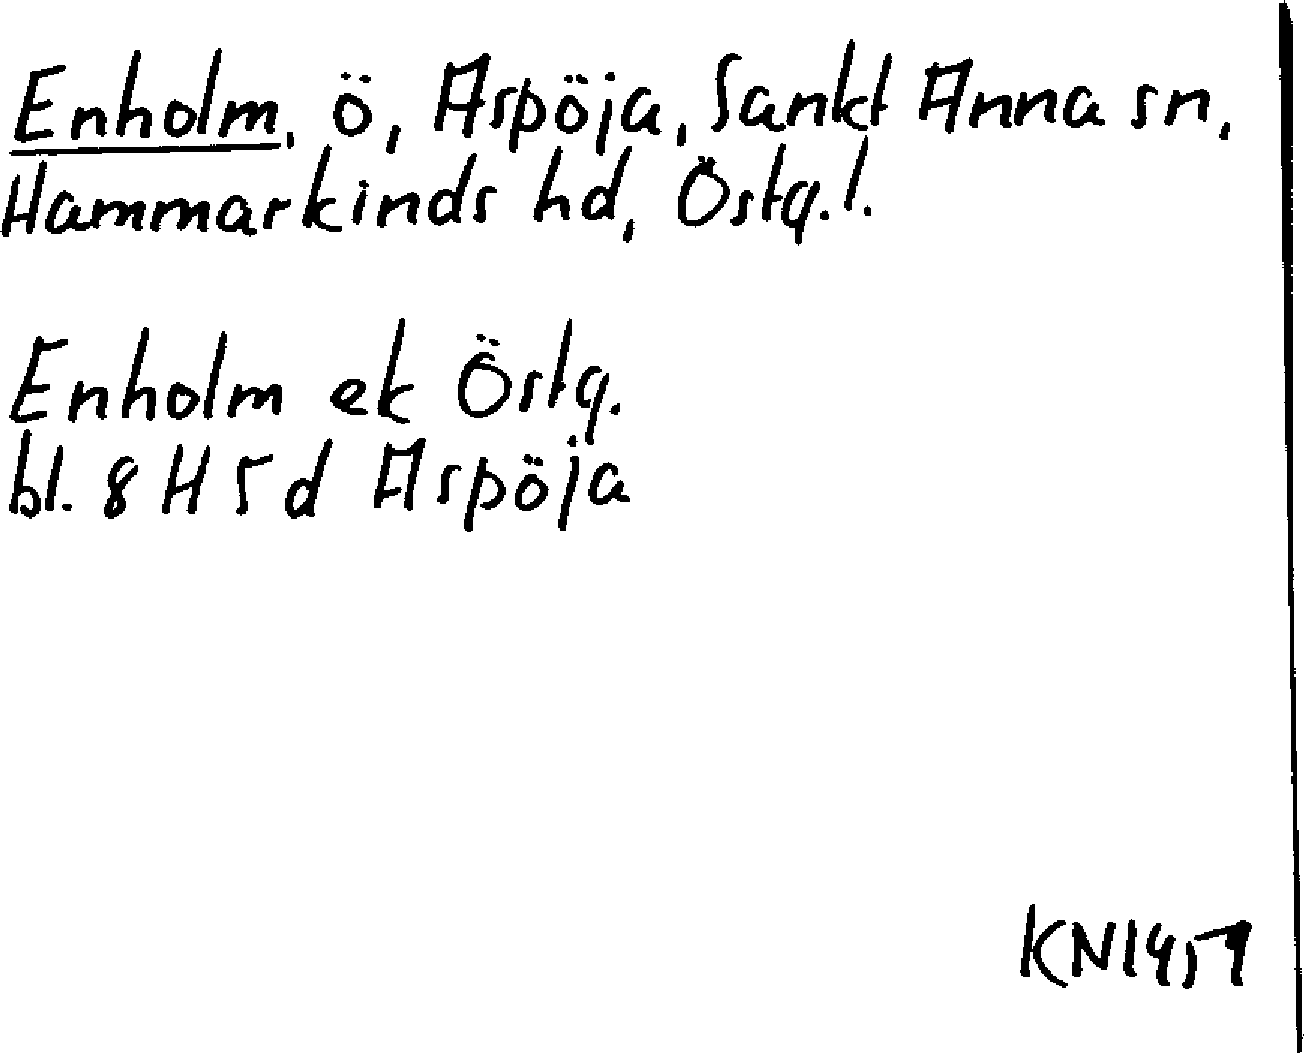 Enholm, ö, Aspöja, Sankt Anna sn,
Hammarkinds hd, Östg.l.
Enholm ek Östg.
bl. 8 H 5 d Aspöja